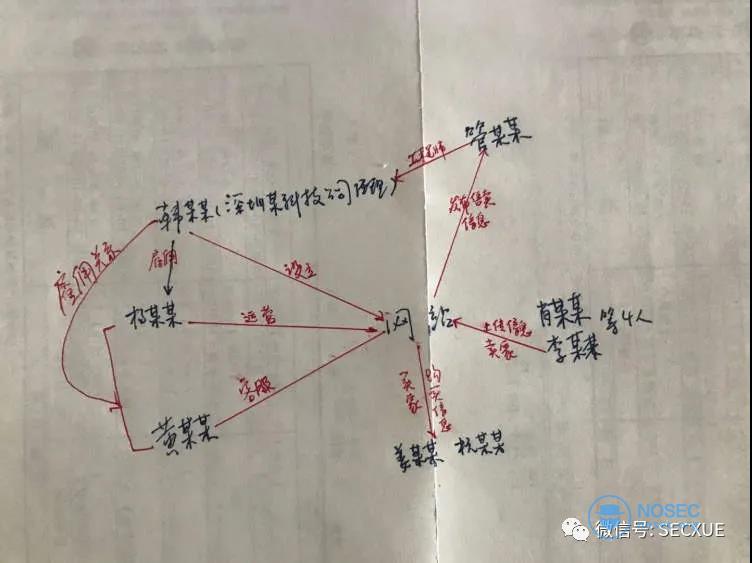 管某某
工程师
韩某某(深圳某科技公司)经理
发布信卖
信息
雇佣关系
雇佣
设立
杨某某
运营
网 站
上传信息
卖家
肖某某
李某某
等4人
客服
买家
购买信息
黄某某
姜某某 杭某某
NOSEC
微信号: SECXUE